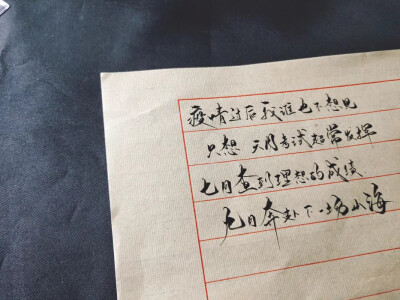 疫情过后我谁也不想见
只想 六月考试超常发挥
七月查到理想的成绩
九月奔赴下一场山海